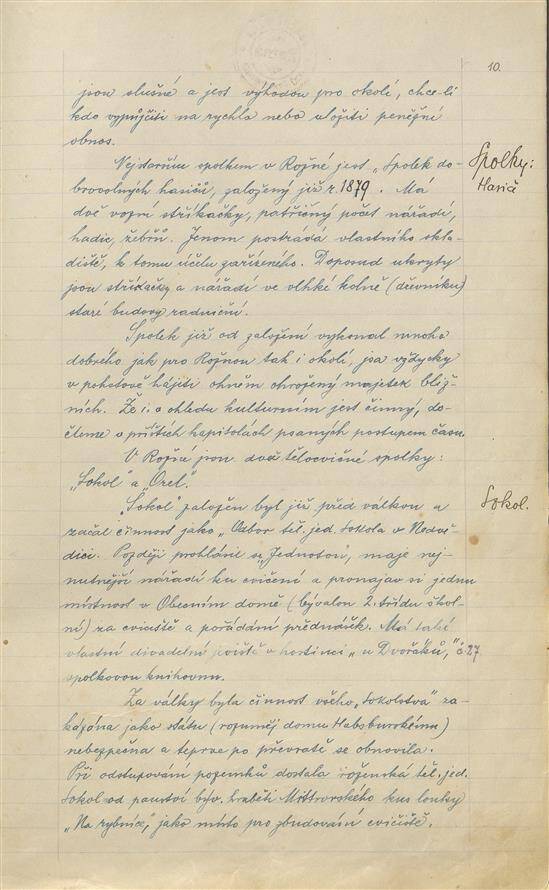 10.
jsou slušné a jest výhodou pro okolí, chce-li
kdo vypůjčiti na rychlo nebo uložiti peněžní
obnos.
Spolky:
Hasič
Nejstarším spolkem v Rožné jest „Spolek do-
brovolných hasičů, založený již r. 1879. Má
dvě vozní stříkačky, patřičný počet nářadí,
hadic, žebřů. Jenom postrádá vlastního skla-
diště, k tomu účelu zařízeného. Doposud ukryty
jsou stříkačky a nářadí ve vlhké kolně (dřevníku)
staré budovy radniční.
Spolek již od založení vykonal mnoho
dobrého jak pro Rožnou tak i okolí, jsa vždycky
v pohotově hájiti ohněm ohrožený majetek bliž-
ních. Že i o ohledu kulturním jest činný, do-
čteme v příštích kapitolách psaných postupem času.
V Rožné jsou dva tělocvičné spolky:
„Sokol" a „Orel."
Sokol.
„Sokol" založen byl již před válkou a
začal činnost jako „Odbor těl. jed. Sokola v Nedvě-
dici. Později prohlásil se „Jednotou", maje nej-
nutnější nářadí ku cvičení a pronajav si jednu
místnost v Obecním domě (bývalou 2. třídu škol-
ní) za cvičiště a pořádání přednášek. Má také
vlastní divadelní jeviště v hostinci „u Dvořáků," č. 27
spolkovou knihovnu.
Za války byla činnost všeho „Sokolstva" za-
kázána jako státu (rozuměj domu Habsburskému)
nebezpečna a teprve po převratě se obnovila.
Při odstupování pozemků dostala roženská těl. jed.
Sokol od panství býv. hraběti Mittrovského kus louky
„Na rybníce," jako místo pro zbudování cvičiště.